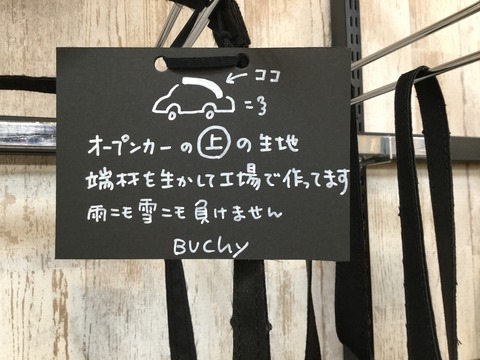 ココ
オープンカーの上の生地
端材を生かして工場で作ってます
雨ニモ雪ニモ負けません
BUCHY